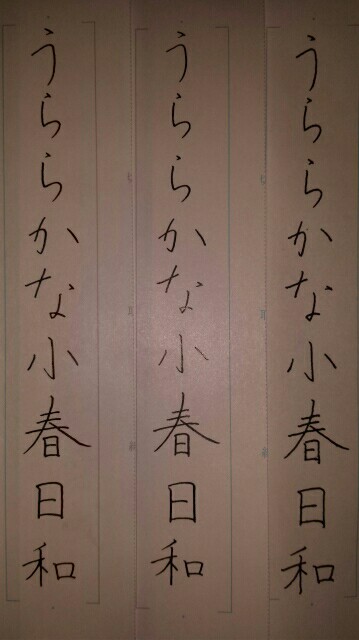 うららかな小春日和
うららかな小春日和
うららかな小春日和